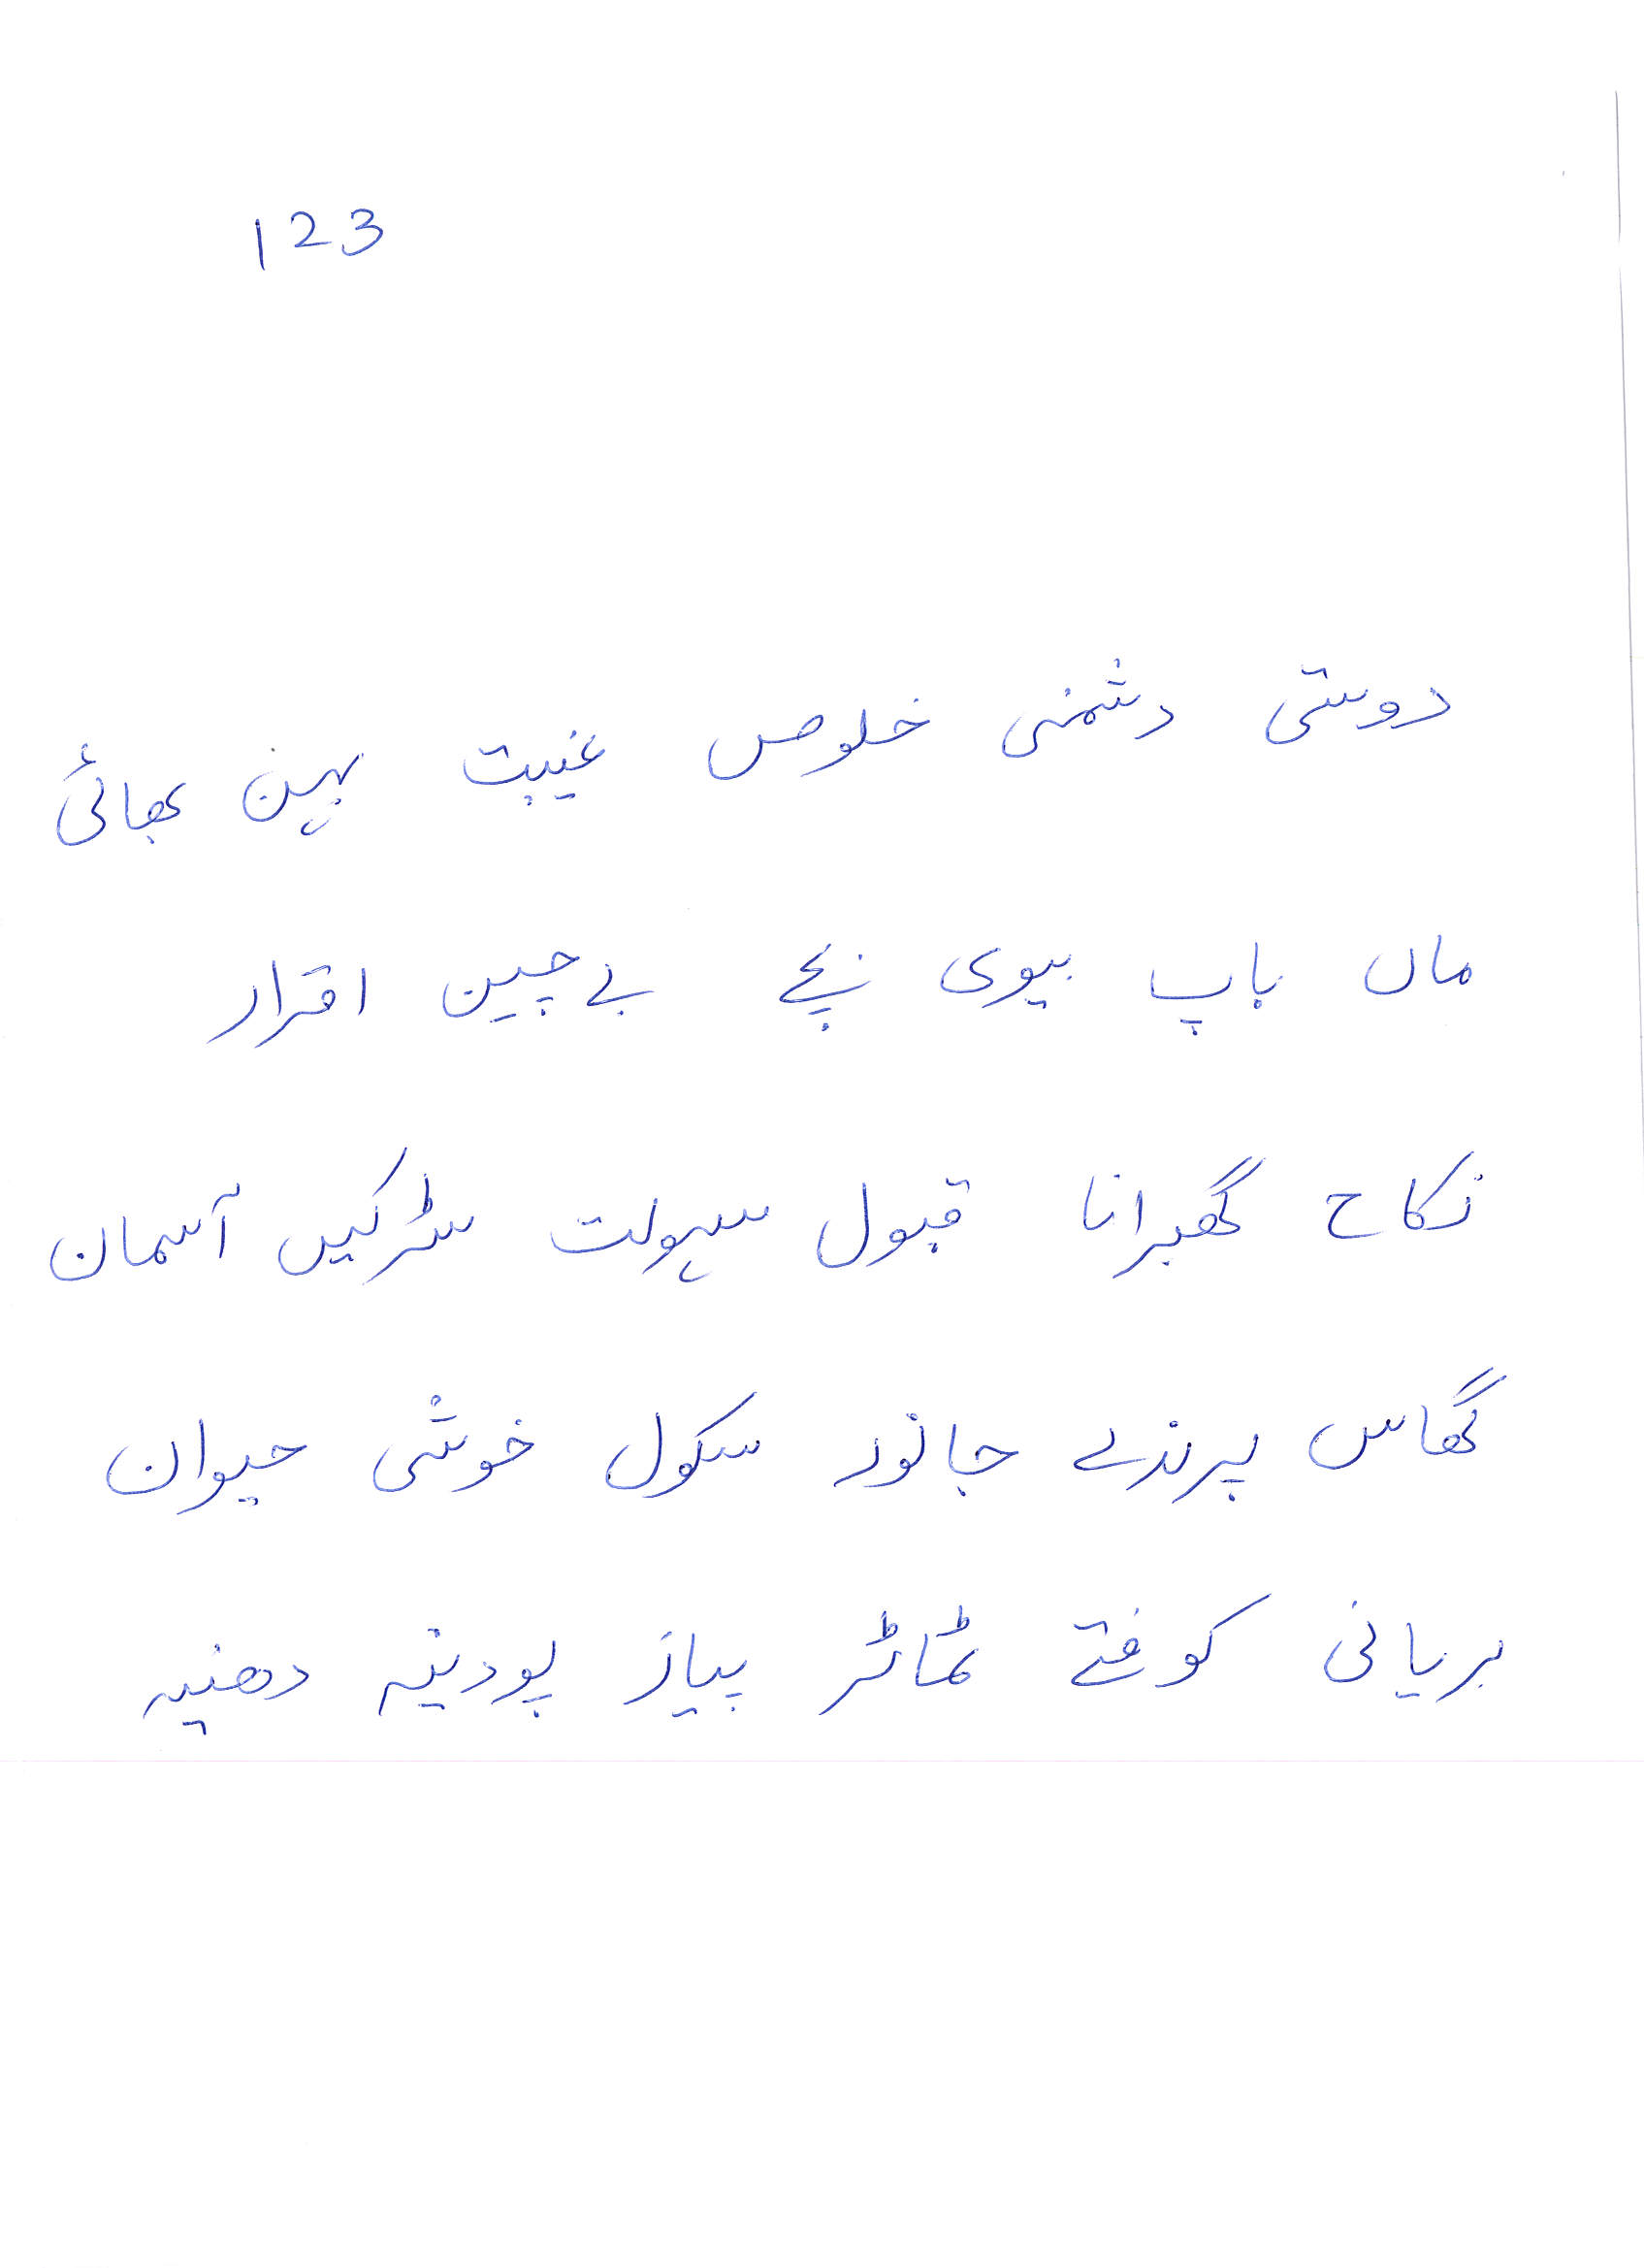 123
دوستی دشمنی خلوص غیبت بہن بھائی
ماں باپ بیوی بچے بےچین اقرار
نکاح گھبرانا قبول سہولت سڑکیں آسمان
گھاس پرندے جانور سکول خوشی حیوان
بریانی کوفتے ٹماٹر پیاز پودینہ دھنیہ